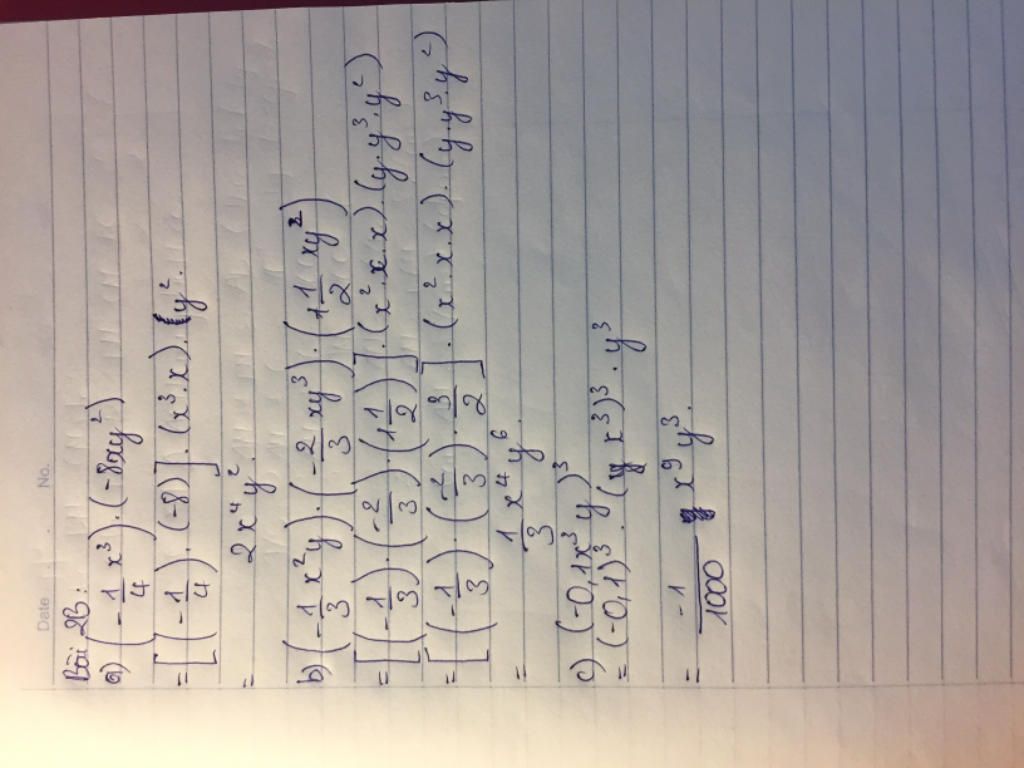 Date . No.
Bài 2B:
a) (-1/4 x³) . (-8xy²)
= [(-1/4) . (-8)] . (x³.x) . y².
= 2x⁴y².
b) (-1/3 x²y) . (-2/3 xy³) . (1 1/2 xy²)
= [(-1/3) . (-2/3) (1 1/2)] . (x².x.x) . (y.y³.y²)
= [(-1/3) . (-2/3) . 3/2] . (x².x.x) . (y.y³.y²)
= 1/3 x⁴y⁶
c) (-0,1x³y)³
= (-0,1)³ . (x³)³ . y³
= -1/1000 x⁹y³.